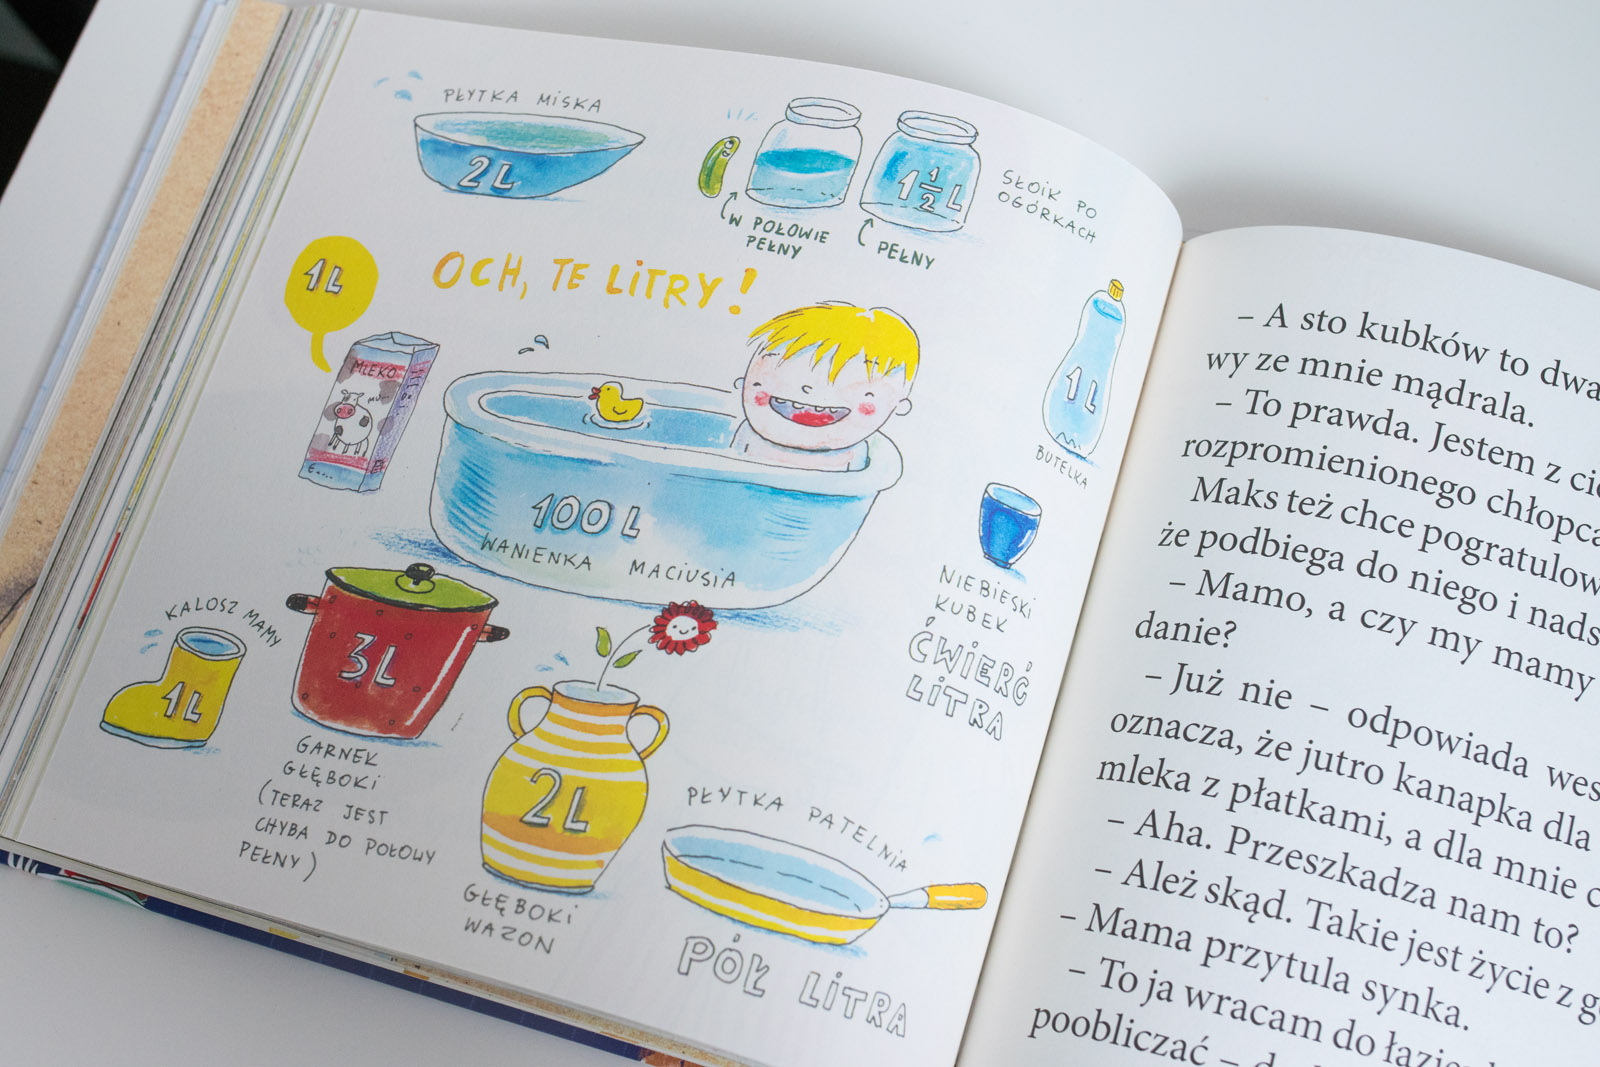 PŁYTKA MISKA
2L
1 1/2 L
SŁOIK PO
OGÓRKACH
W POŁOWIE
PEŁNY
PEŁNY
OCH, TE LITRY!
1L
MLEKO
MU...
1L
BUTELKA
100 L
WANIENKA MACIUSIA
NIEBIESKI
KUBEK
ĆWIERĆ
LITRA
KALOSZ MAMY
1L
3L
GARNEK
GŁĘBOKI
(TERAZ JEST
CHYBA DO POŁOWY
PEŁNY)
2L
GŁĘBOKI
WAZON
PŁYTKA PATELNIA
PÓŁ LITRA
– A sto kubków to dwa
wy ze mnie mądrala.
– To prawda. Jestem z cie
rozpromienionego chłopca
Maks też chce pogratulow
że podbiega do niego i nads
– Mamo, a czy my mamy
danie?
– Już nie – odpowiada wes
oznacza, że jutro kanapka dla
mleka z płatkami, a dla mnie c
– Aha. Przeszkadza nam to?
– Ależ skąd. Takie jest życie z g
– Mama przytula synka.
– To ja wracam do łazienk
poobliczać – d